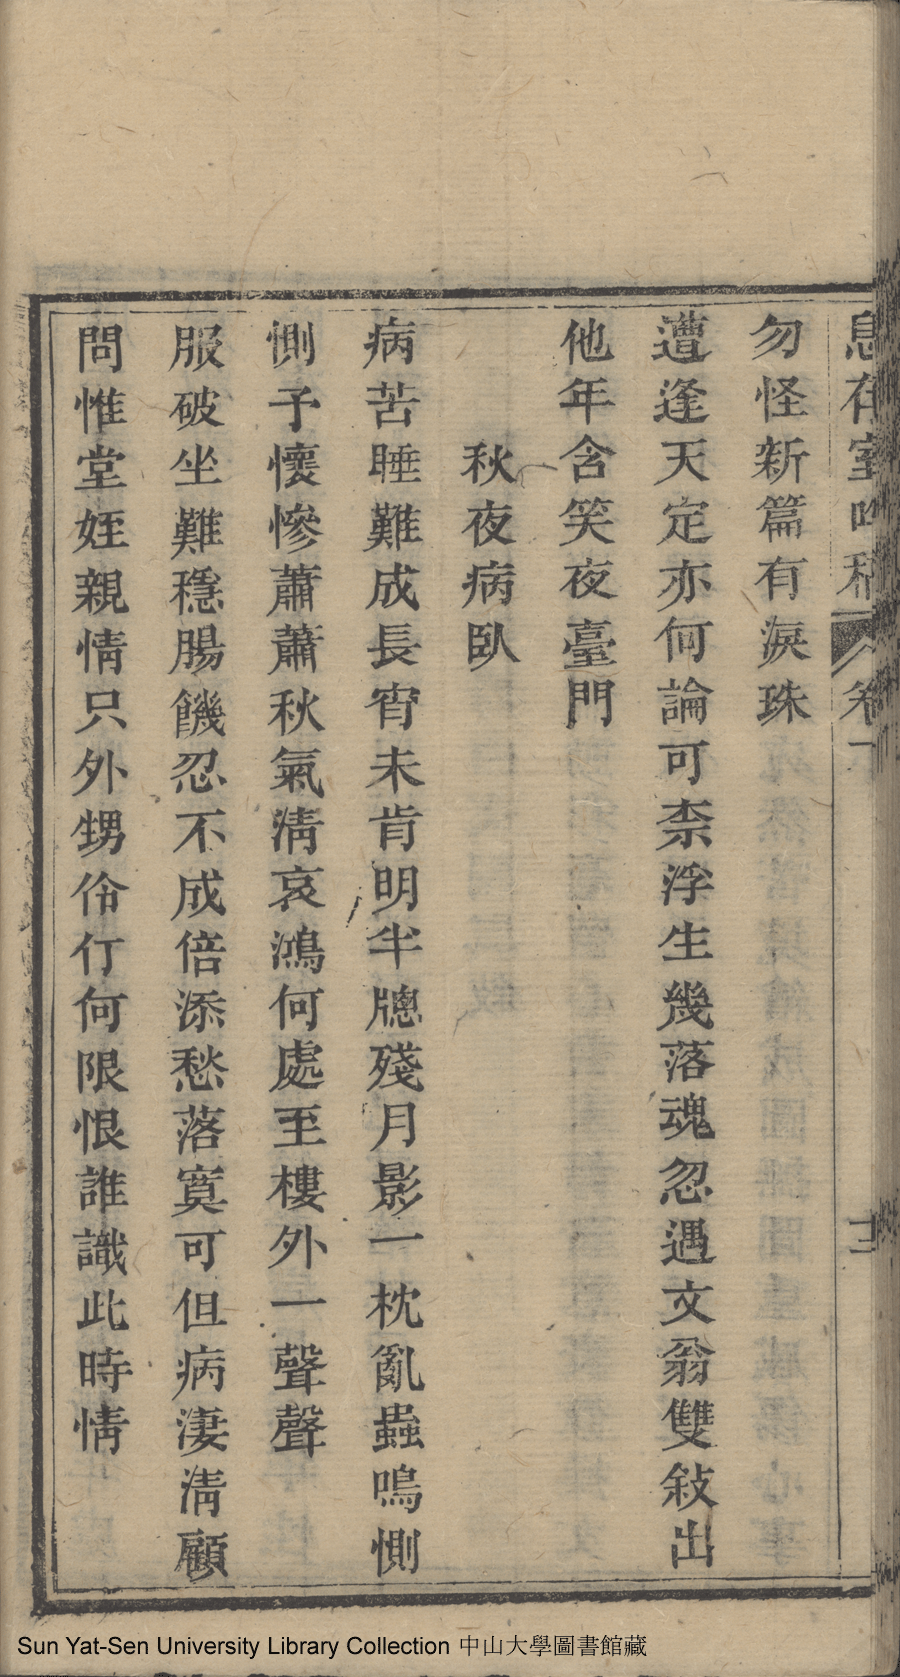 息存室吟稿 卷下 十二
勿怪新篇有淚珠
遭逢天定亦何論可柰浮生幾落魂忽遇文翁雙敍出
他年含笑夜臺門
秋夜病臥
病苦睡難成長宵未肯明半牕殘月影一枕亂蟲鳴惻
惻予懷慘蕭蕭秋氣淸哀鴻何處至樓外一聲聲
服破坐難穩腸饑忍不成倍添愁落寞可但病淒淸顧
問惟堂姪親情只外甥伶仃何限恨誰識此時情
Sun Yat-Sen University Library Collection 中山大學圖書館藏